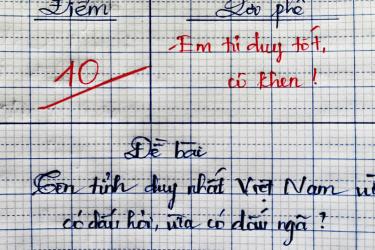 Điểm Lời phê
-Em tư duy tốt,
10
có khen !
Đề bài
Tên tỉnh duy nhất Việt Nam
có dấu hỏi, vừa có dấu ngã ?